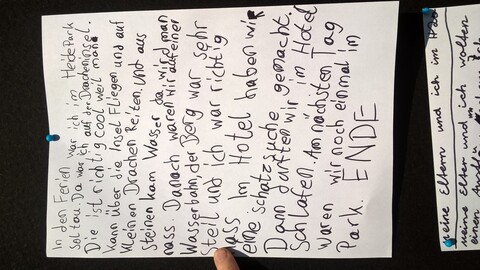 In den Ferien war ich im HeidePark
Soltau. Da war ich auf der Dracheninsel.
Die ist richtig cool weil man
kann über die Insel Fliegen und auf
kleinen Drachen Reiten. Und aus
steinen kam Wasser da wird man
nass. Danach waren wir auf einer
Wasserbahn, der Berg war sehr
steil und ich war richtig
nass. Im Hotel haben wir
eine schatzsuche gemacht.
Dann durften wir im Hotel
Schlafen. Am nächsten Tag
waren wir noch einmal im
Park. ENDE
eine Eltern und ich im
meine Eltern und ich wollten
einen